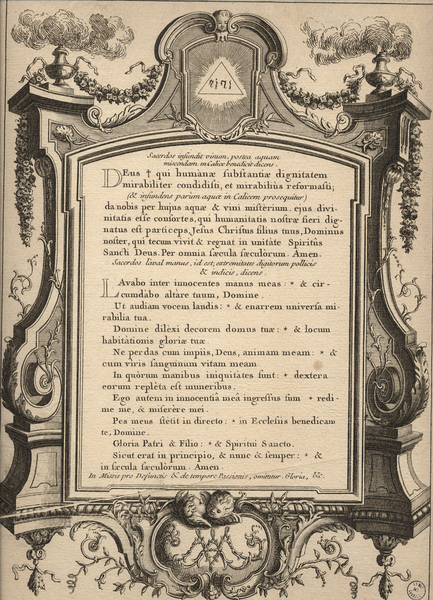 יהוה
Sacerdos infundit vinum, postea aquam
miscendam in Calice benedicit dicens.
DEus † qui humanæ substantiæ dignitatem
mirabiliter condidisti, et mirabiliùs reformasti;
(& infundens parum aquæ in Calicem prosequitur)
da nobis per hujus aquæ & vini misterium, ejus divi-
nitatis esse consortes, qui humanitatis nostræ fieri dig-
natus est particeps, Jesus Christus filius tuus, Dominus
noster, qui tecum vivit & regnat in unitate Spiritûs
Sancti Deus. Per omnia sæcula sæculorum. Amen.
Sacerdos lavat manus, id est, extremitates digitorum pollicis
& indicis, dicens.
LAvabo inter innocentes manus meas: * & cir-
cumdabo altare tuum, Domine.
Ut audiam vocem laudis: * & enarrem universa mi-
rabilia tua.
Domine dilexi decorem domus tuæ: * & locum
habitationis gloriæ tuæ.
Ne perdas cum impiis, Deus, animam meam: * &
cum viris sanguinum vitam meam.
In quorum manibus iniquitates sunt: * dextera
eorum repléta est muneribus.
Ego autem in innocentiâ meâ ingressus sum * redi-
me me, & miserére mei.
Pes meus stetit in directo: * in Ecclesiis benedicam
te, Domine.
Gloria Patri & Filio: * & Spiritui Sancto.
Sicut erat in principio, & nunc & semper: * &
in sæcula sæculorum. Amen.
In Missis pro Defunctis & de tempore Passionis, omittitur, Gloria, &c.